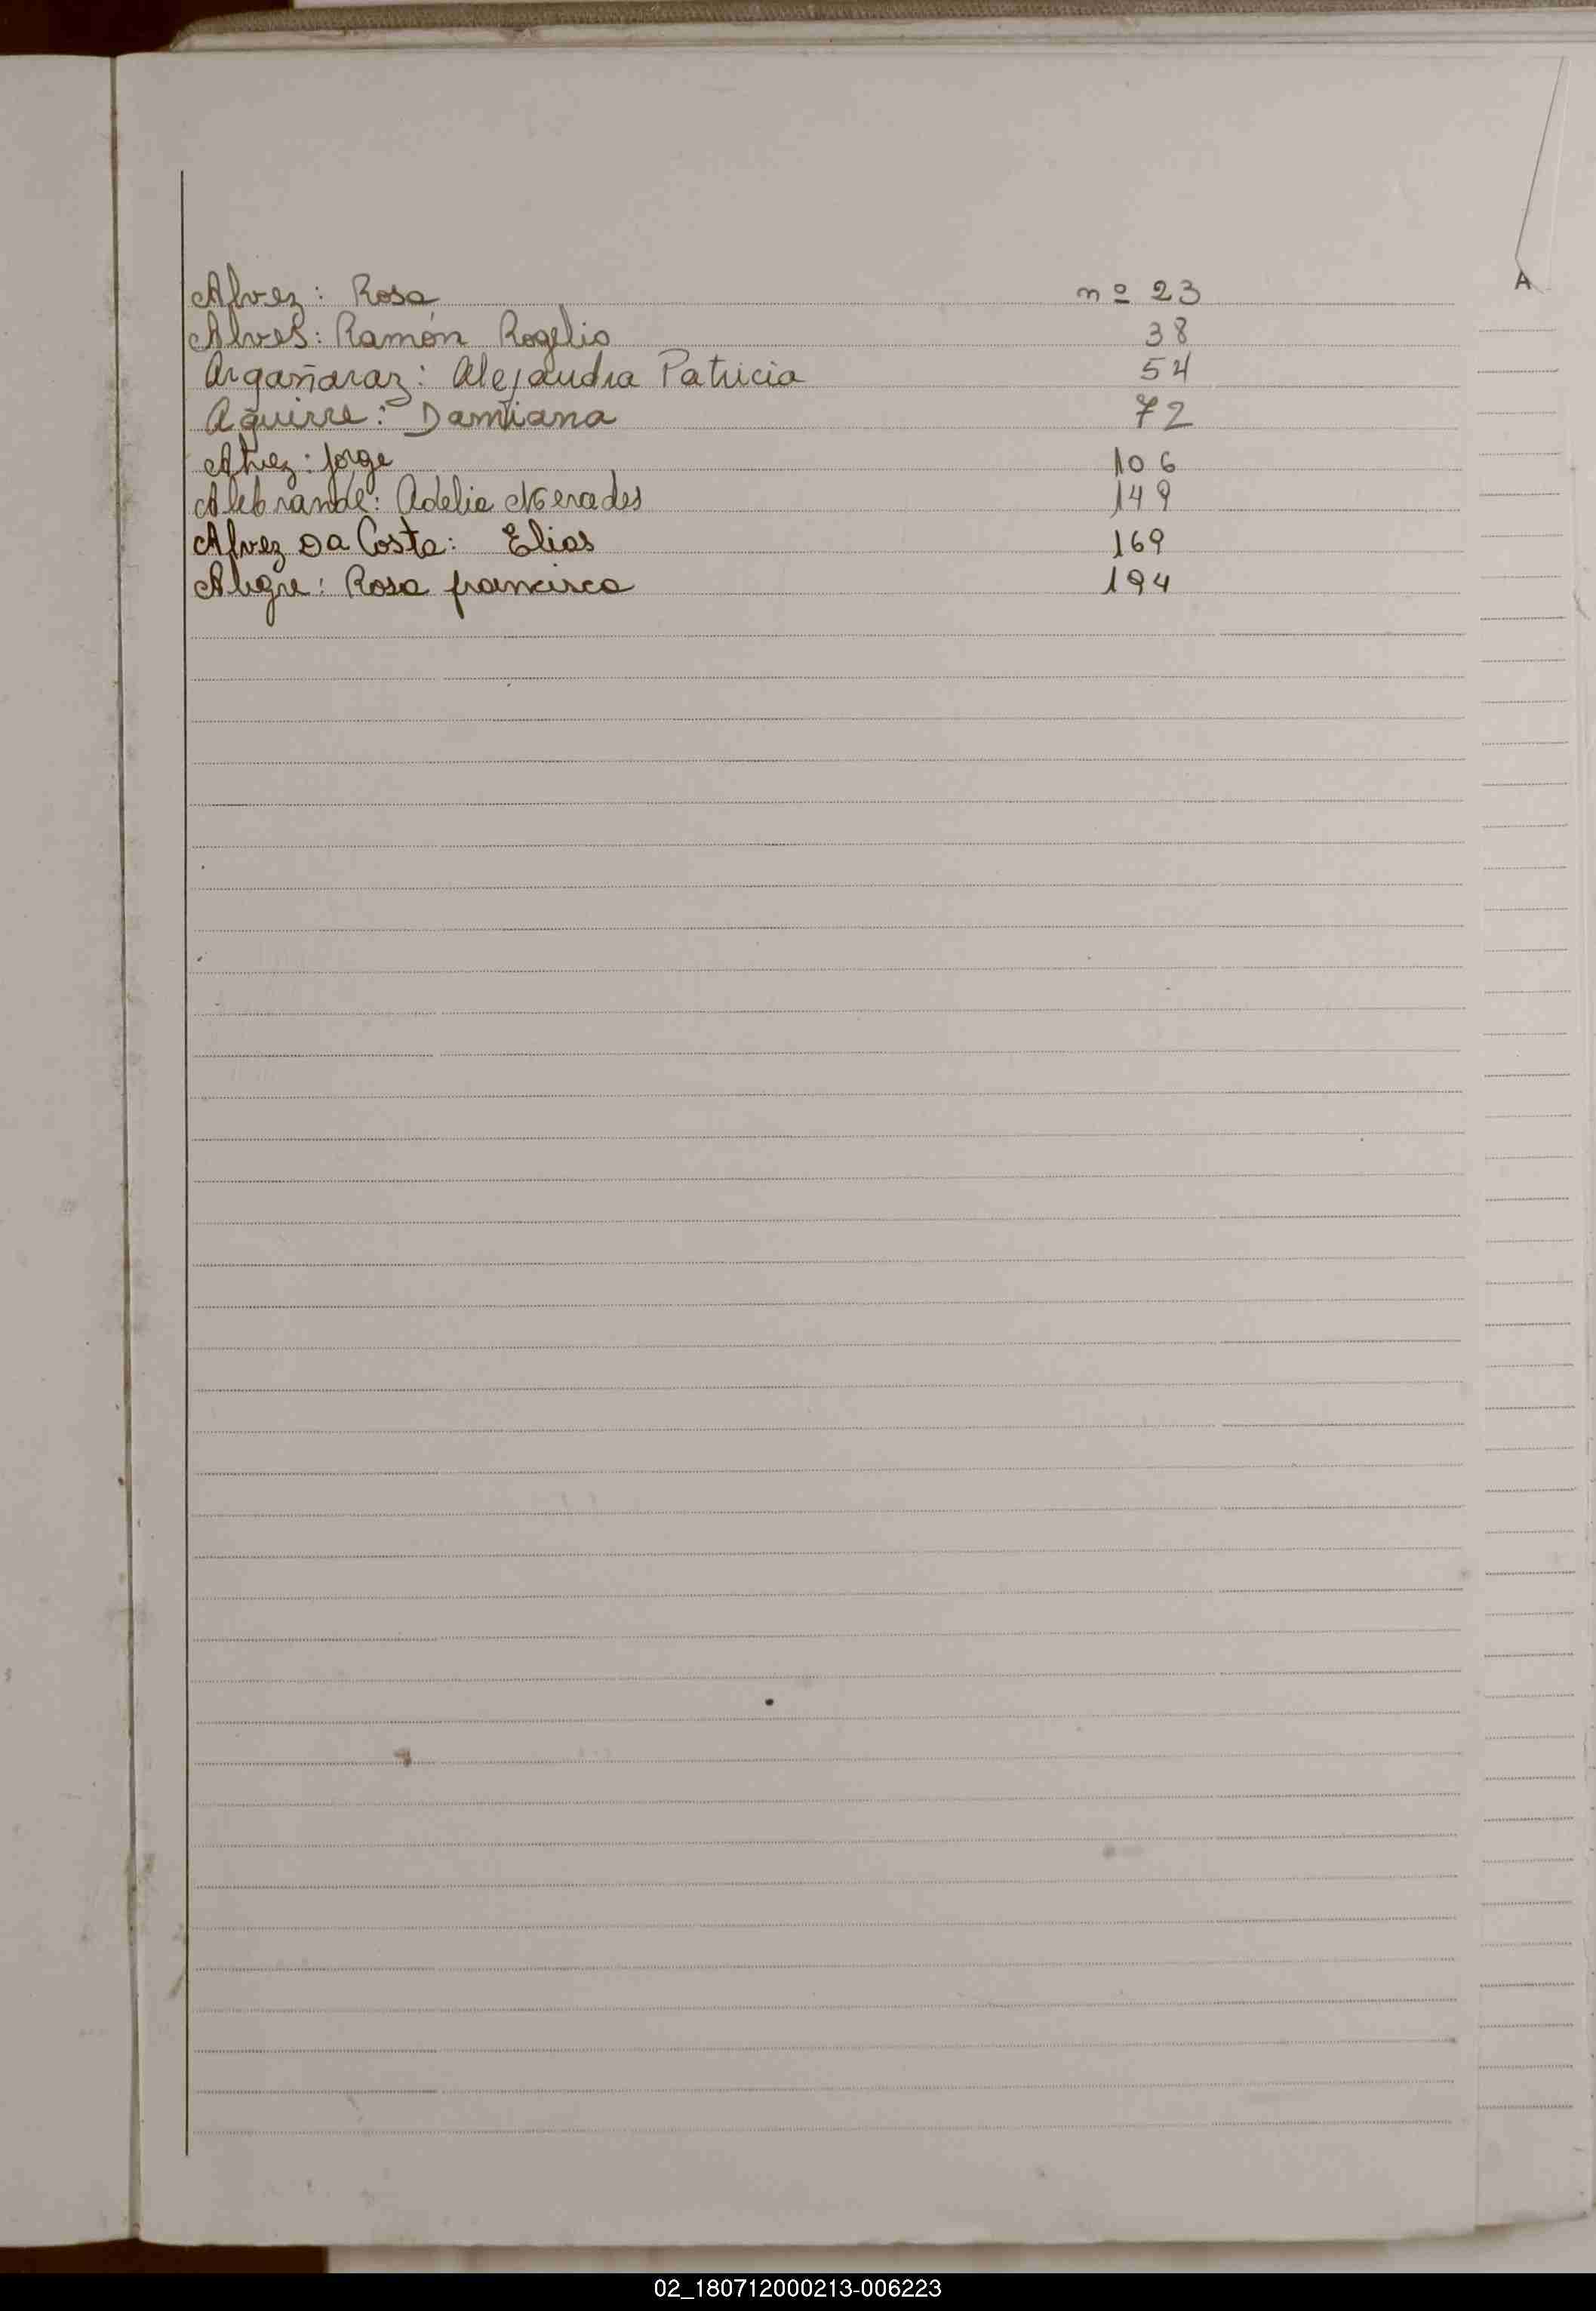 A
Alvez: Rosa nº 23
Alves: Ramón Rogelio 38
Argañaraz: Alejandra Patricia 54
Aguirre: Damiana 72
Alvez: Jorge 106
Adelia 149
Alvez Da Costa: Elias 169
Alegre: Rosa francisca 194
02_180712000213-006223